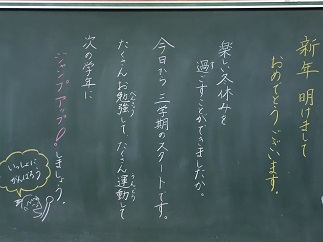 新年 明けまして
おめでとう ございます。
楽しい冬休みを
過ごすことができましたか。
今日から 三学期のスタートです。
たくさんお勉強して、たくさん運動して
次の学年に
ジャンプアップ!しましょう。
いっしょに
がんばろう